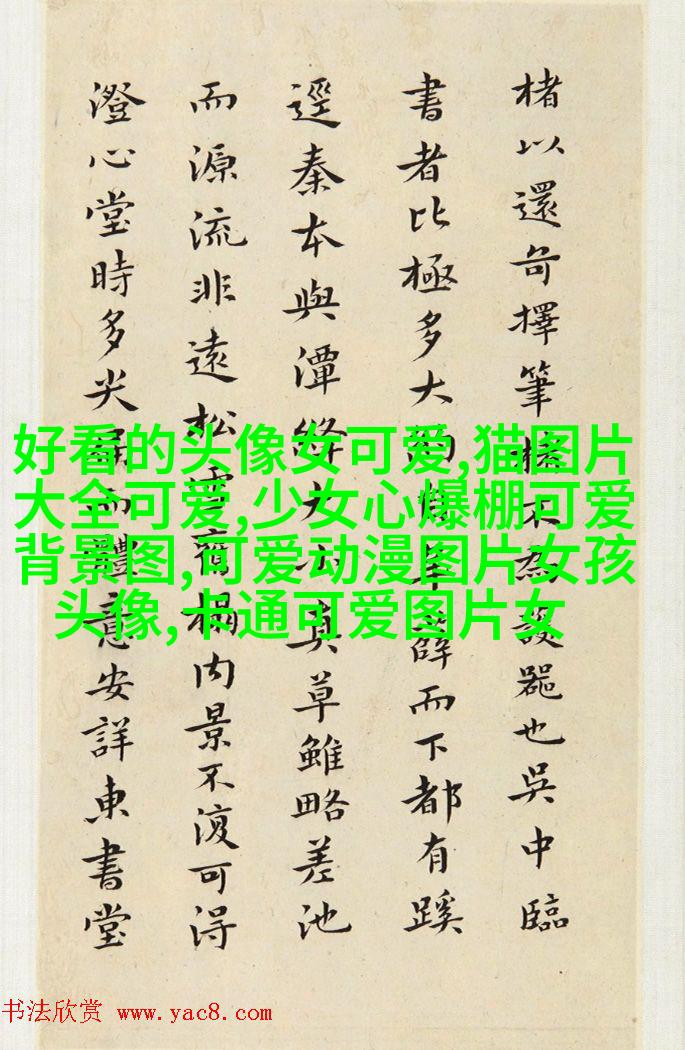 楮以還奇擇筆
不為設器也吳中臨
書者比極多大
薛而下都有蹊
逕秦本與潭絳
真草雖略差池
而源流非遠松雪齋
榻內景不復可得
澄心堂時多尖
意安詳東書堂
好看的头像女可爱,猫图片
大全可爱,少女心爆棚可爱
背景图,可爱动漫图片女孩
头像,卡通可爱图片女
书法欣赏 www.yac8.com